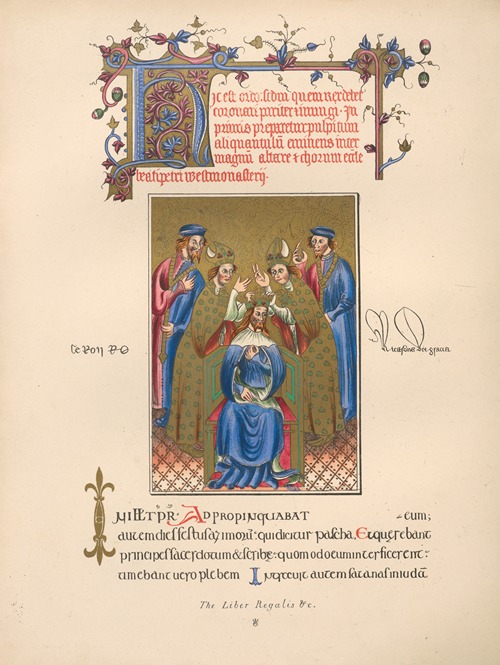 Hic est ordo: scdm quem rex debet
coronari pariter ⁊ inungi. In
primis preparetur pulpitum
aliquantulū eminens inter
magnū altare ⁊ chorum eccle
beati petri westmonasterij.
le Roy
dei gracia
IN ILL TPR. ADPROPINQUABAT eum;
autem dies festus azymorū: qui dicitur pascha. Et querebant
principes sacerdotum & scribę: quomodo eum interficerent:
timebant uero plebem Intrauit autem satanas in iudā
The Liber Regalis &c.